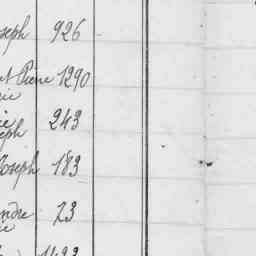 seph 926
t Pierre 1290
rie
ie 243
eph
Joseph 183
ndre 23
ie